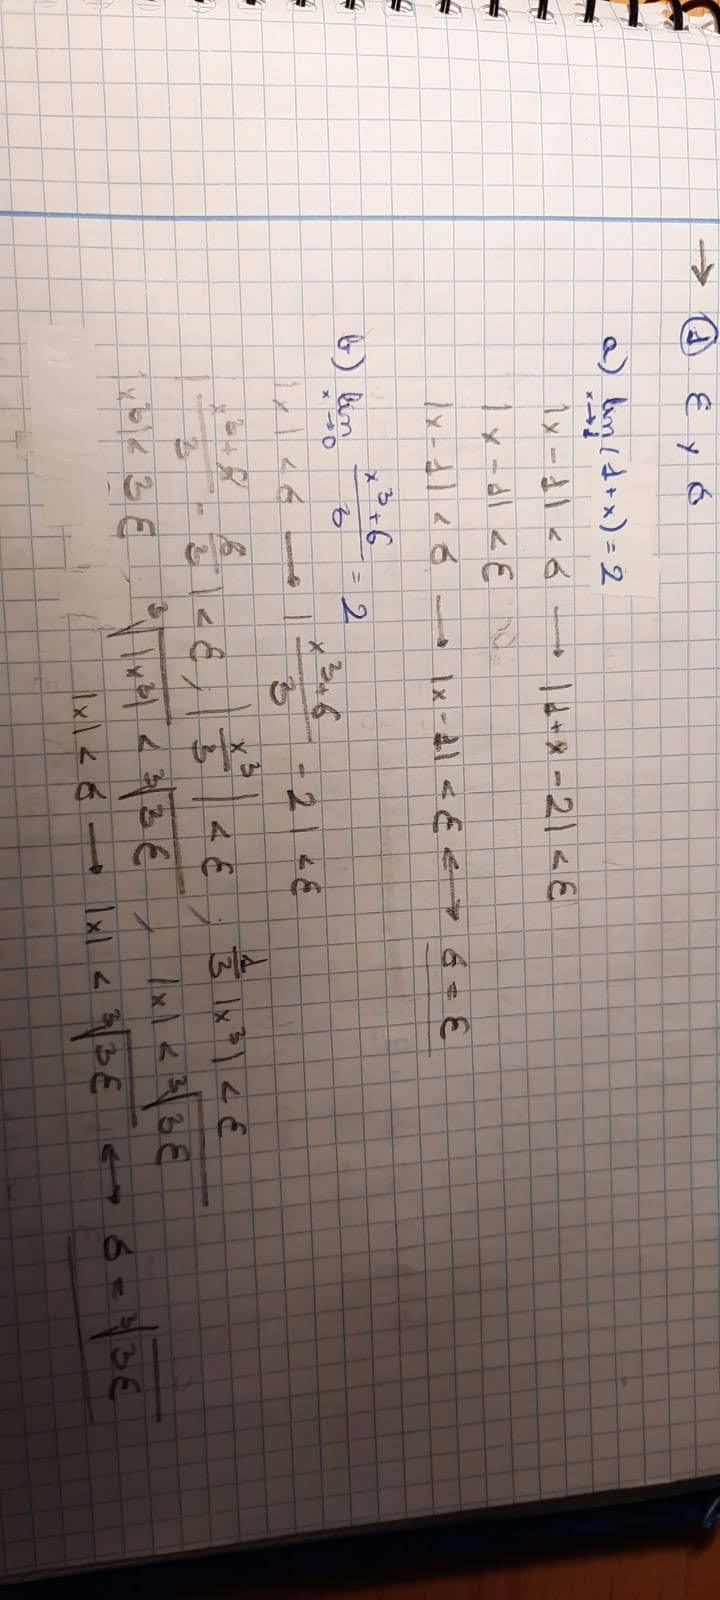 → ① ε y δ
a) lim (1+x) = 2
x→1
|x-1| < δ → |1+x-2| < ε
|x-1| < ε
|x-1| < δ → |x-1| < ε ↔ δ = ε
b) lim x³+6/3 = 2
x→0
|x| < δ → |x³+6/3 - 2| < ε
|x³+6/3 - 6/3| < ε, |x³/3| < ε, 1/3 |x³| < ε
|x³| < 3ε, ³√|x³| < ³√3ε, |x| < ³√3ε
|x| < δ → |x| < ³√3ε ↔ δ = ³√3ε